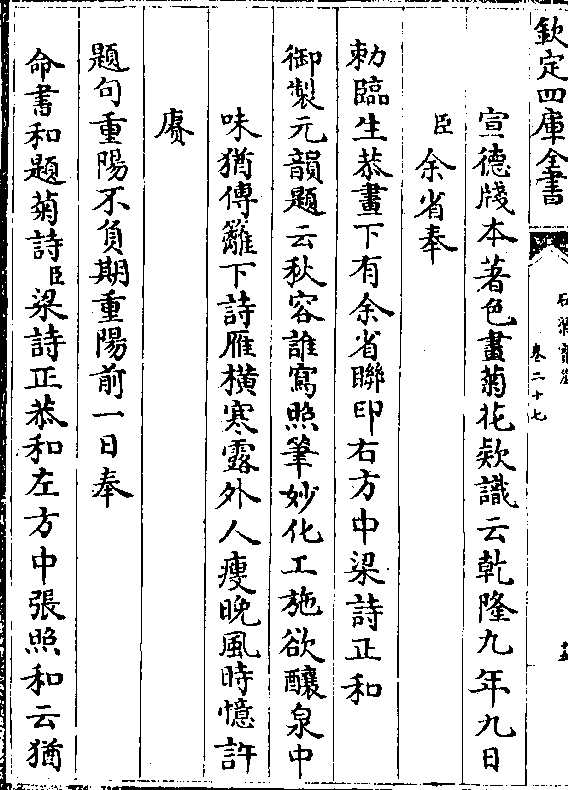 欽定四庫全書
石渠寶笈
卷二十七
宣德牋本著色畫菊花欵識云乾隆九年九日
臣余省奉
勅臨生恭畫下有余省聯印右方中梁詩正和
御製元韻題云秋容誰寫照筆妙化工施欲釀泉中
味猶傳籬下詩雁橫寒露外人瘦晚風時憶許
賡
題句重陽不負期重陽前一日奉
命書和題菊詩臣梁詩正恭和左方中張照和云猶